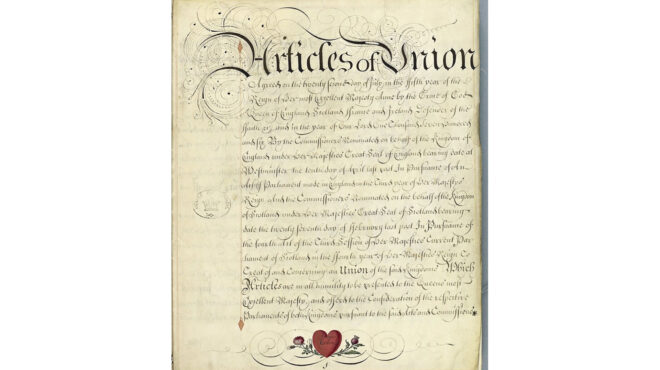 Articles of Union
Agreed on the twenty second day of July in the fifth year of the
Reign of Her most Excellent Majesty Anne by the Grace of God
Queen of England Scotland France and Ireland Defender of the
Faith &c and in the year of our Lord One thousand Seven Hundred
and six By the Commissioners Nominated on behalf of the Kingdom of
England under Her Majesties Great Seal of England bearing date at
Westminster the tenth day of April last past In Pursuance of An
Act of Parliament made in England in the third year of Her Majesties
Reign And the Commissioners Nominated on the behalf of the Kingdom
of Scotland under Her Majesties Great Seal of Scotland bearing
date the twenty seventh day of February last past In Pursuance of
the fourth Act of the third Session of Her Majesties Current Par
liament of Scotland in the fourth year of Her Majesties Reign To
Treat of and Concerning an Union of the said Kingdoms Which
Articles are in all humility to be presented to the Queens most
Excellent Majesty and offered to the Consideration of the respective
Parliaments of both Kingdoms pursuant to the said Acts and Commissions